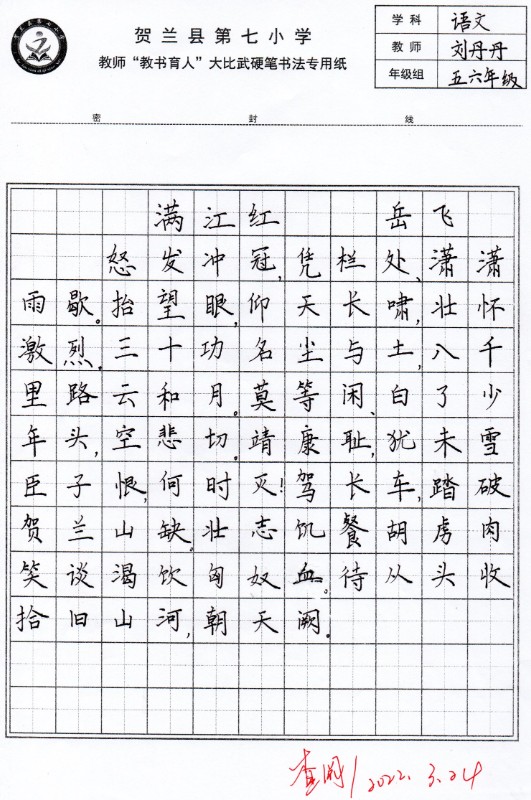 贺兰县第七小学
教师“教书育人”大比武硬笔书法专用纸
学科 语文
教师 刘丹丹
年级组 五六年级
密 封 线
满江红 岳飞
怒发冲冠,凭栏处、潇潇
雨歇。抬望眼,仰天长啸,壮怀
激烈。三十功名尘与土,八千
里路云和月。莫等闲、白了少
年头,空悲切。靖康耻,犹未雪
臣子恨,何时灭!驾长车,踏破
贺兰山缺。壮志饥餐胡虏肉
笑谈渴饮匈奴血。待从头收
拾旧山河,朝天阙。
2022.3.24